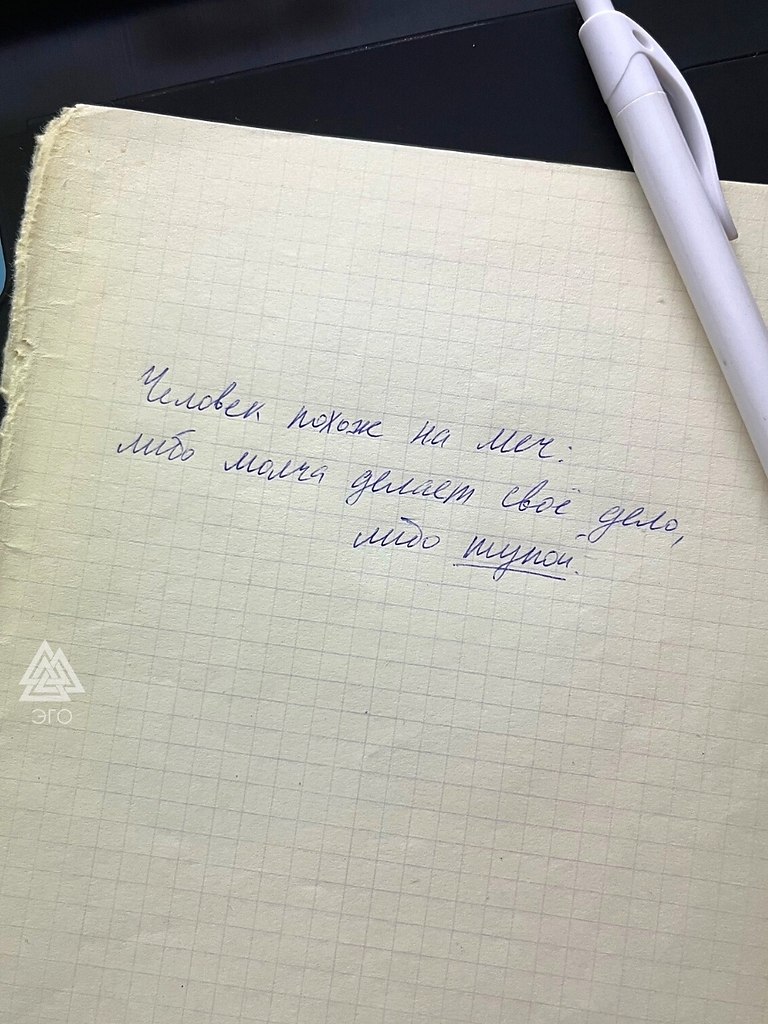 Человек похож на меч:
либо молча делает своё дело,
либо тупой.
ЭГО